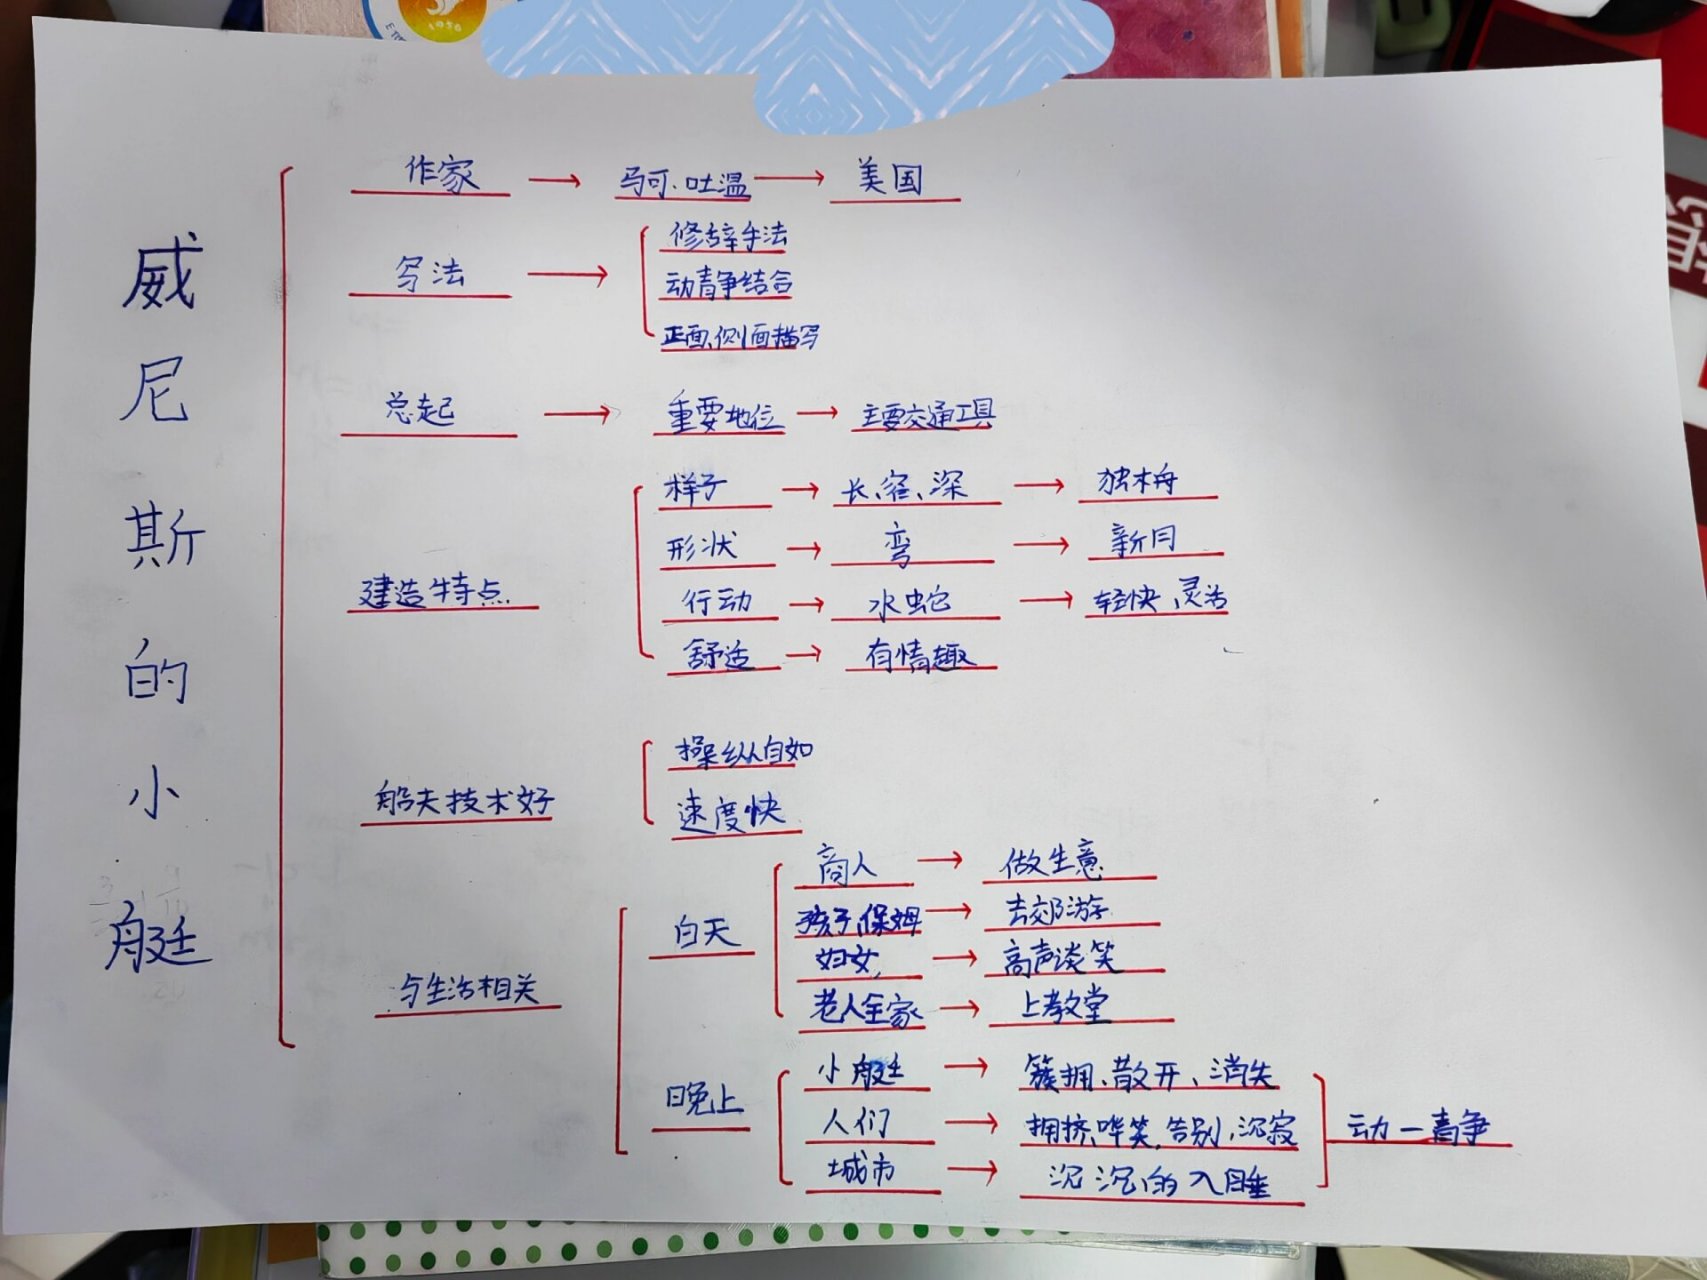 威尼斯的小艇
作家 → 马可·吐温 → 美国
写法 →
修辞手法
动静结合
正面、侧面描写
总起 → 重要地位 → 主要交通工具
建造特点
样子 → 长、窄、深 → 独木舟
形状 → 弯 → 新月
行动 → 水蛇 → 轻快、灵活
舒适 → 有情趣
船夫技术好
操纵自如
速度快
与生活相关
白天
商人 → 做生意
孩子、保姆 → 去郊游
妇女 → 高声谈笑
老人全家 → 上教堂
晚上
小艇 → 簇拥、散开、消失
人们 → 拥挤、哗笑、告别、沉寂
城市 → 沉沉的入睡
动—静
1956